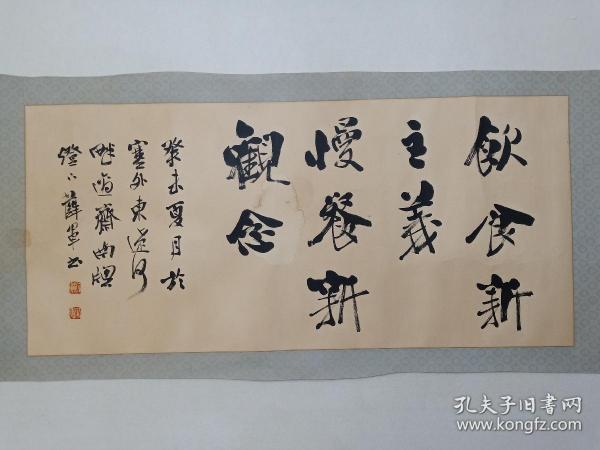 飲食新
主義
慢餐新
觀念
癸未夏月於
塞外東遼河
畔適齋南牕
燈下薛軍书
孔夫子旧书网
www.kongfz.com